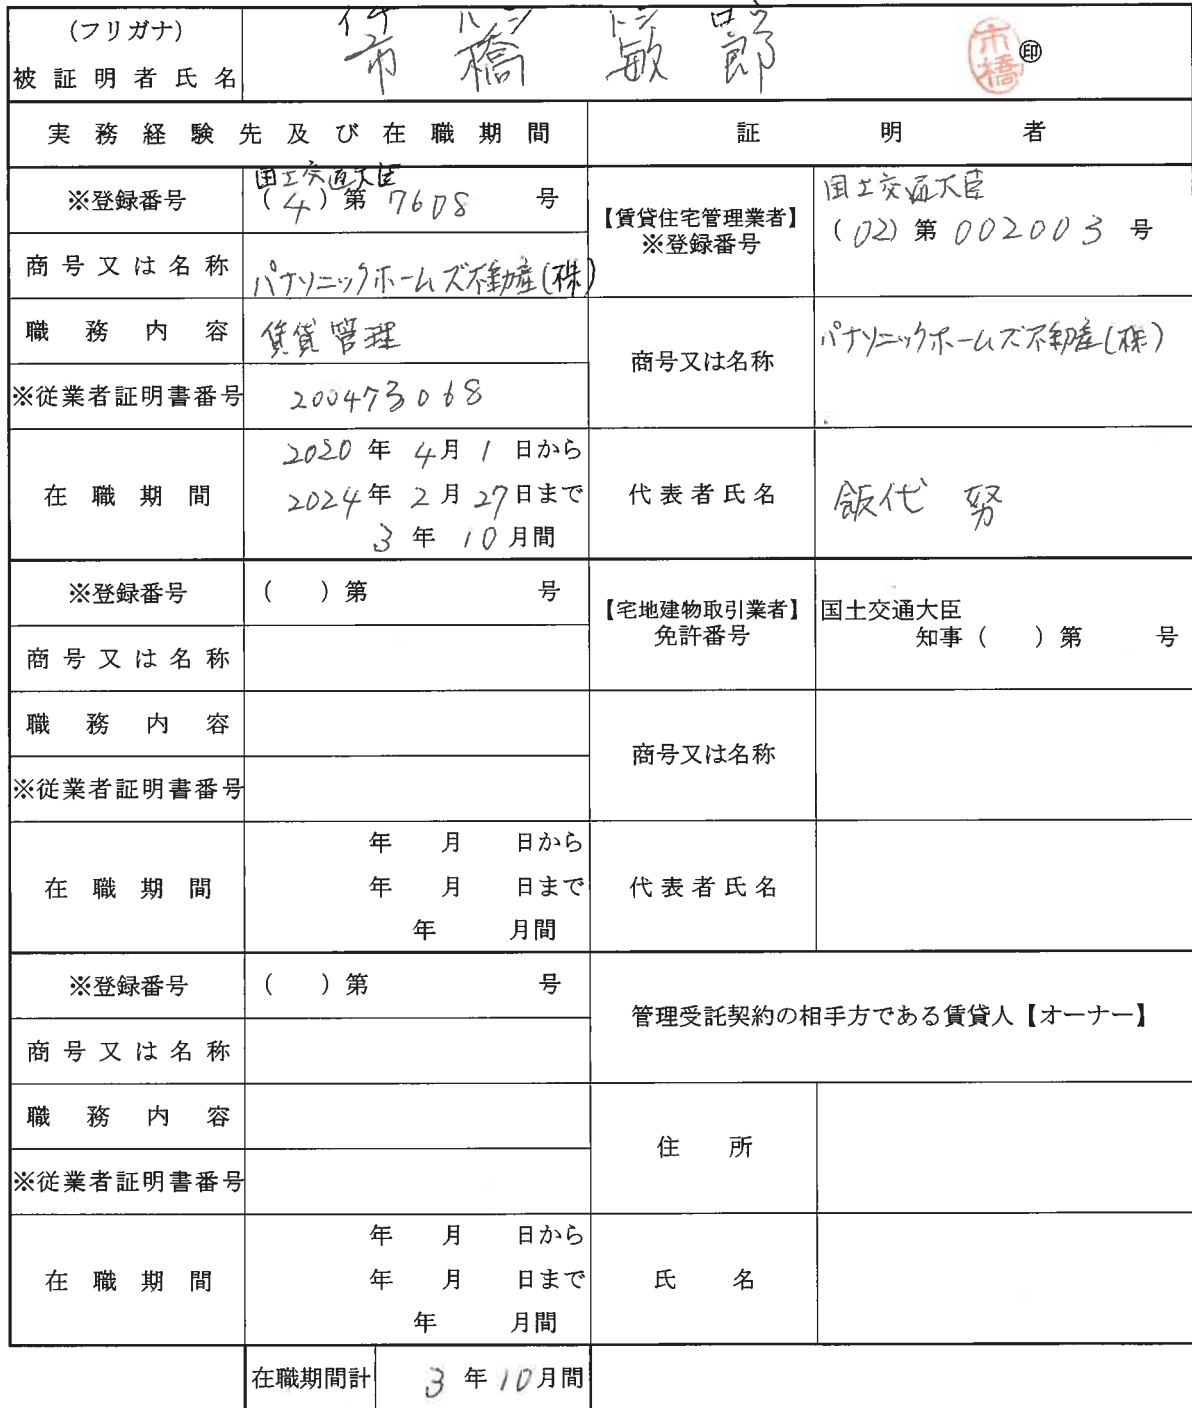 (フリガナ)
イチ ハシ トシ ロウ
被証明者氏名
市 橋 敏 郎
市橋 ㊞
実務経験先及び在職期間
証明者
※登録番号
国土交通大臣
(4)第 7608 号
【賃貸住宅管理業者】
※登録番号
国土交通大臣
(02)第 002003 号
商号又は名称
パナソニックホームズ不動産(株)
職務内容
賃貸管理
商号又は名称
パナソニックホームズ不動産(株)
※従業者証明書番号
200473068
在職期間
2020年 4月 1日から
2024年 2月 27日まで
3年 10月間
代表者氏名
飯代 努
※登録番号
( )第 号
【宅地建物取引業者】
免許番号
国土交通大臣
知事( )第 号
商号又は名称
職務内容
商号又は名称
※従業者証明書番号
在職期間
年 月 日から
年 月 日まで
年 月間
代表者氏名
※登録番号
( )第 号
管理受託契約の相手方である賃貸人【オーナー】
商号又は名称
職務内容
住所
※従業者証明書番号
在職期間
年 月 日から
年 月 日まで
年 月間
氏名
在職期間計
3年10月間